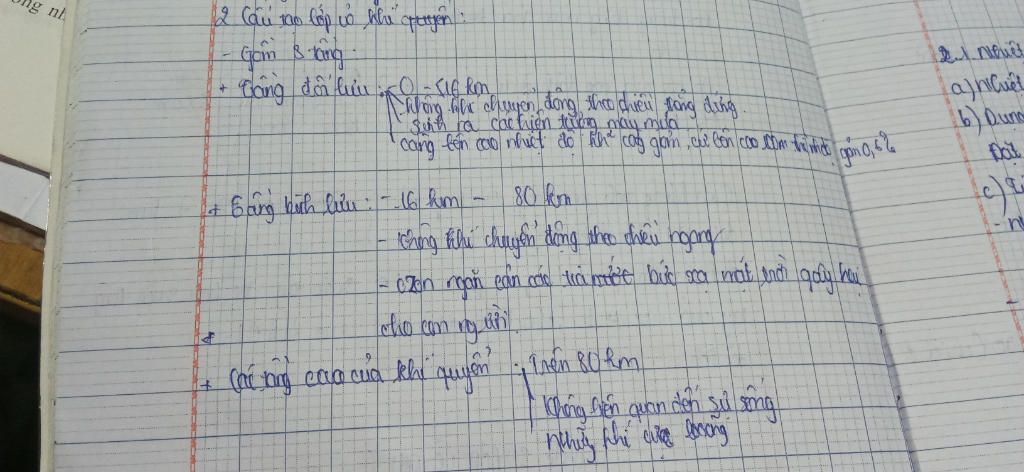 ng nh
2 Cấu tạo lớp vỏ khí quyển:
- Gồm 3 tầng.
+ Tầng đối lưu: - 0 - 16 km
- không khí chuyển động theo chiều thẳng đứng.
sinh ra các hiện tượng mây mưa
càng lên cao nhiệt độ khí càng giảm, cứ lên cao 100m thì nhiệt giảm 0,6
+ Tầng bình lưu: - 16 km - 80 km
- không khí chuyển động theo chiều ngang
- ozon ngăn cản các tia bức xạ mặt trời gây hại
cho con người
+ Các tầng cao của khí quyển: Trên 80 km
Không liên quan đến sự sống
những khí cực loãng
2.1. Nhiệt
a) Nhiệt
b) Dụng
c)